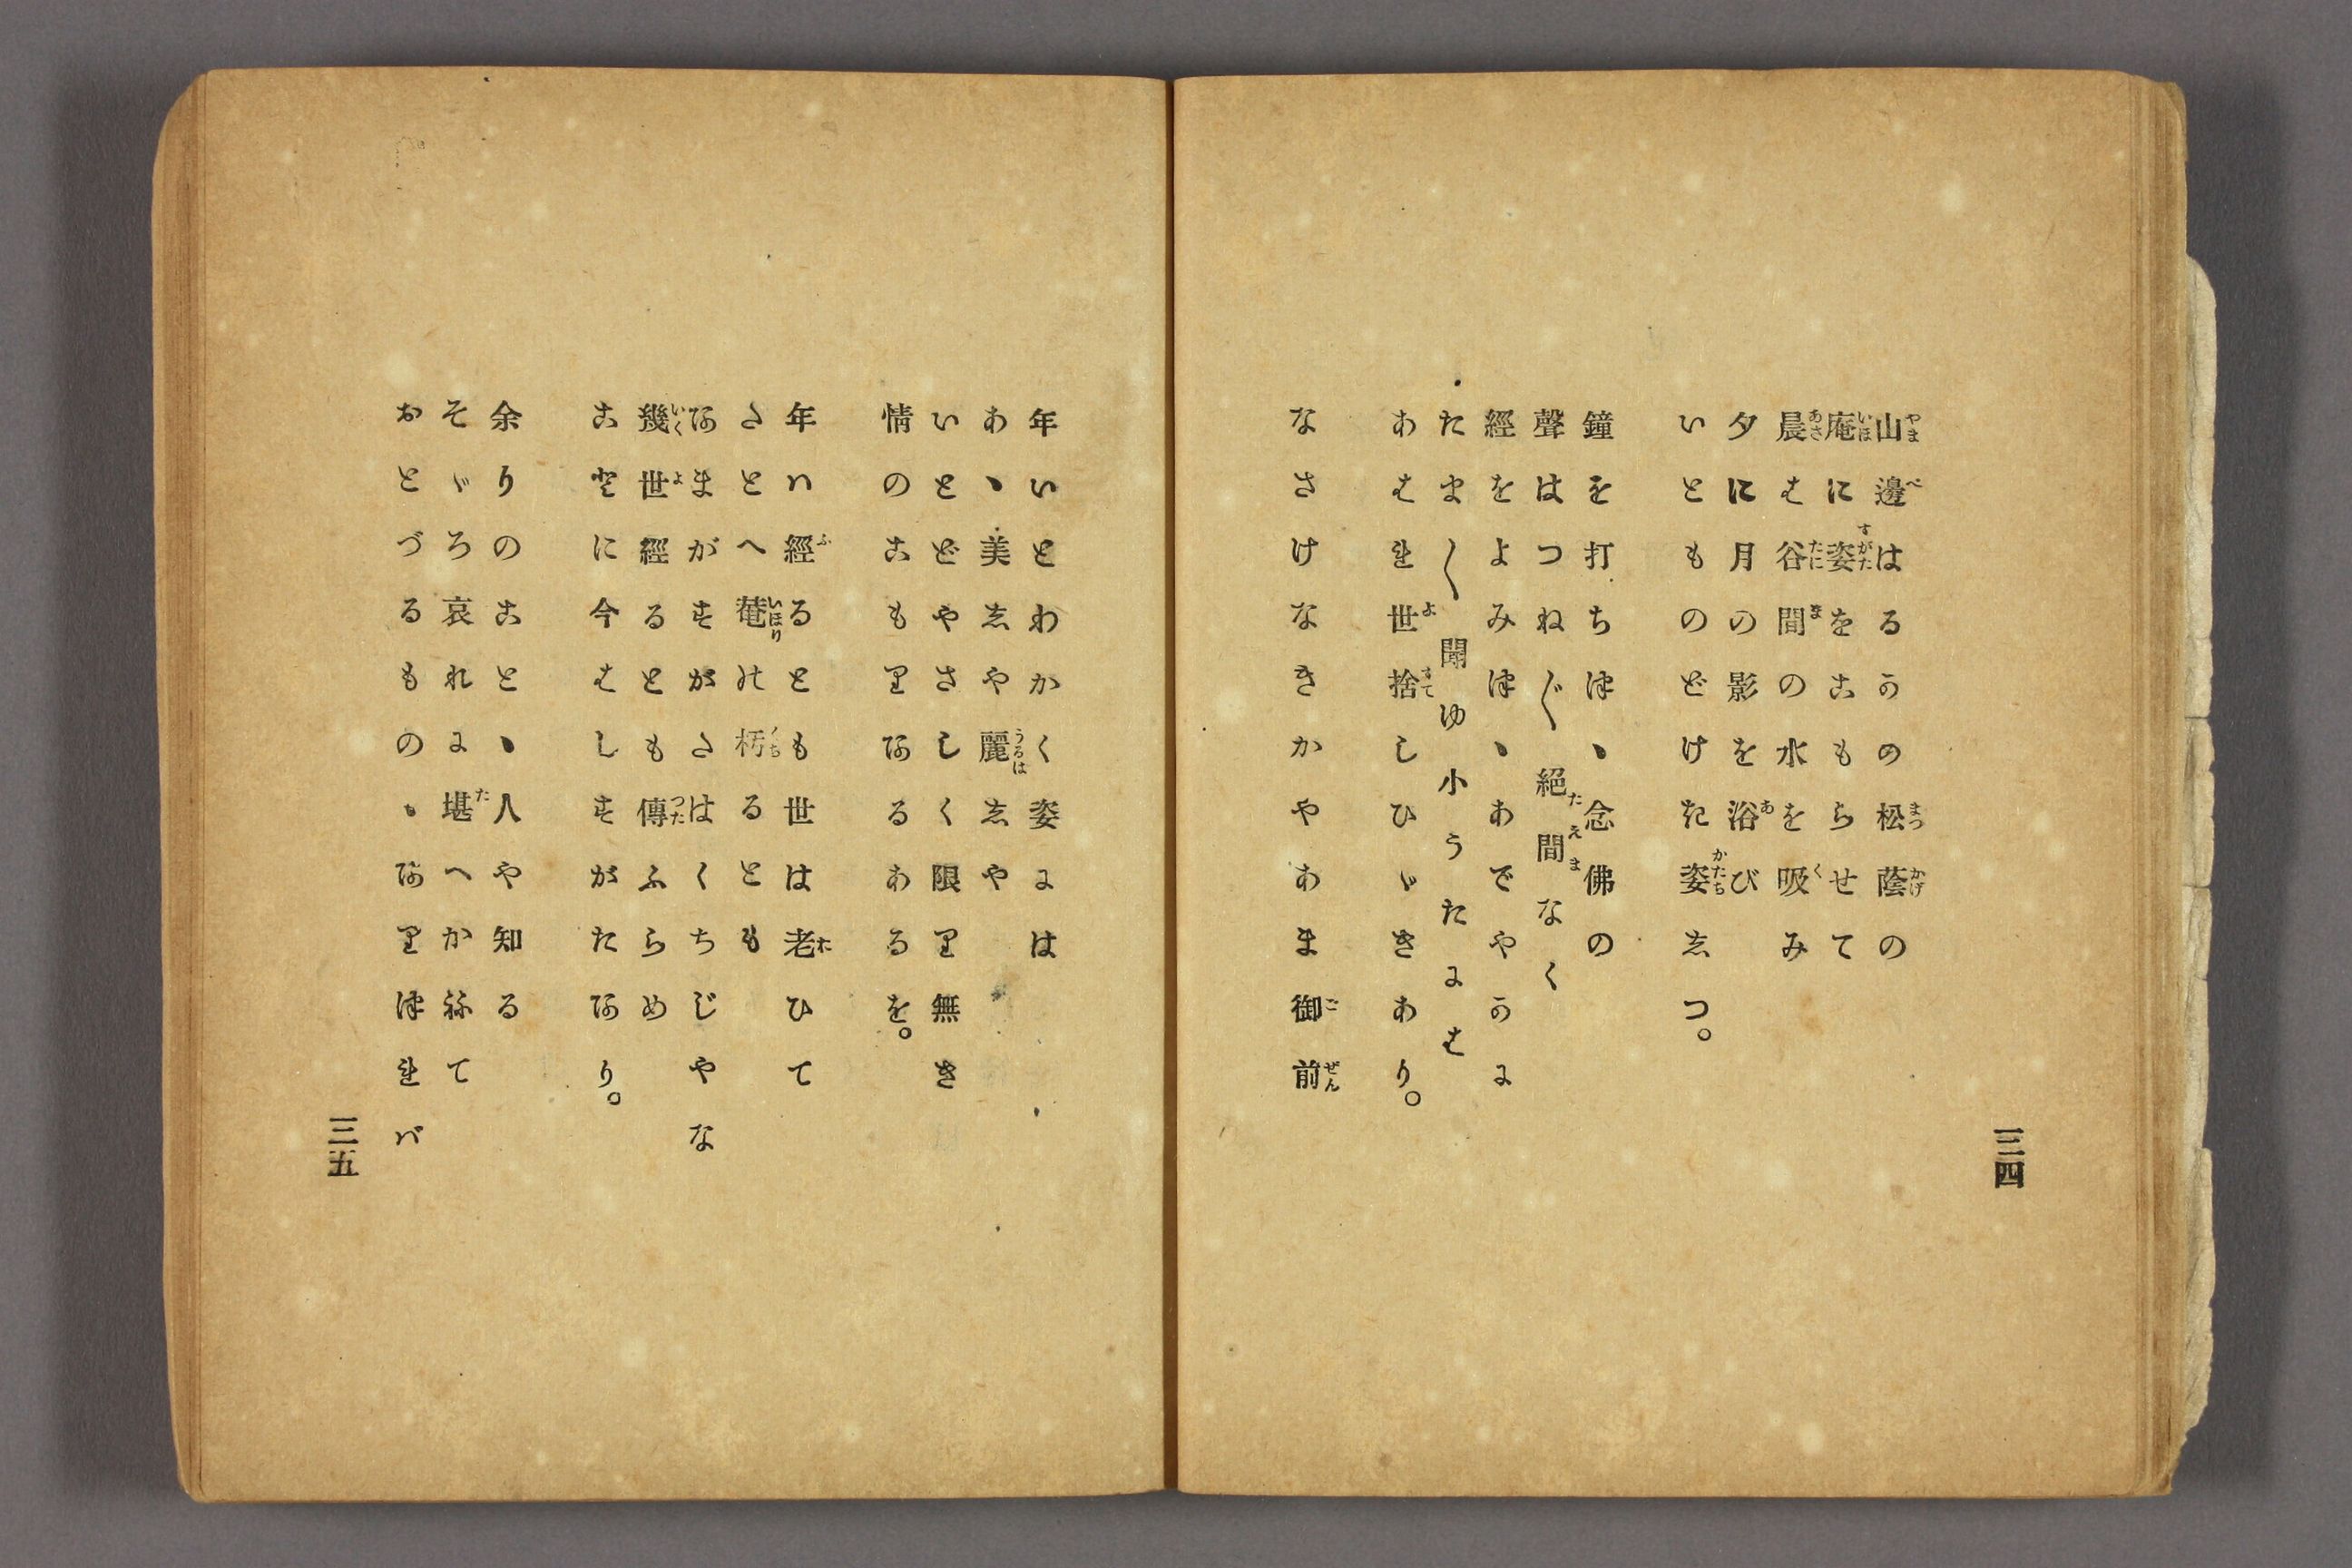 三四
山邊はるかの松蔭の
庵に姿をこもらせて
晨は谷間の水を吸み
夕に月の影を浴び
いとものどけき姿しつ。
鐘を打ちつゝ念佛の
聲はつね〴〵絶間なく
經をよみつゝあでやかに
たま〳〵聞ゆ小うたには
あはれ世捨しひゞきあり。
なさけなきかやあま御前
年いとわかく姿には
あゝ美しや麗しや
いとどやさしく限り無き
情のこもりなるあるを。
年ハ經るとも世は老ひて
たとへ菴の朽るとも
なまがすがたはくちじやな
幾世經るとも傳ふらめ
ことに今はしすがたなり。
余りのことゝ人や知る
そゞろ哀れに堪へかねて
おとづるものゝなりつれバ
三五